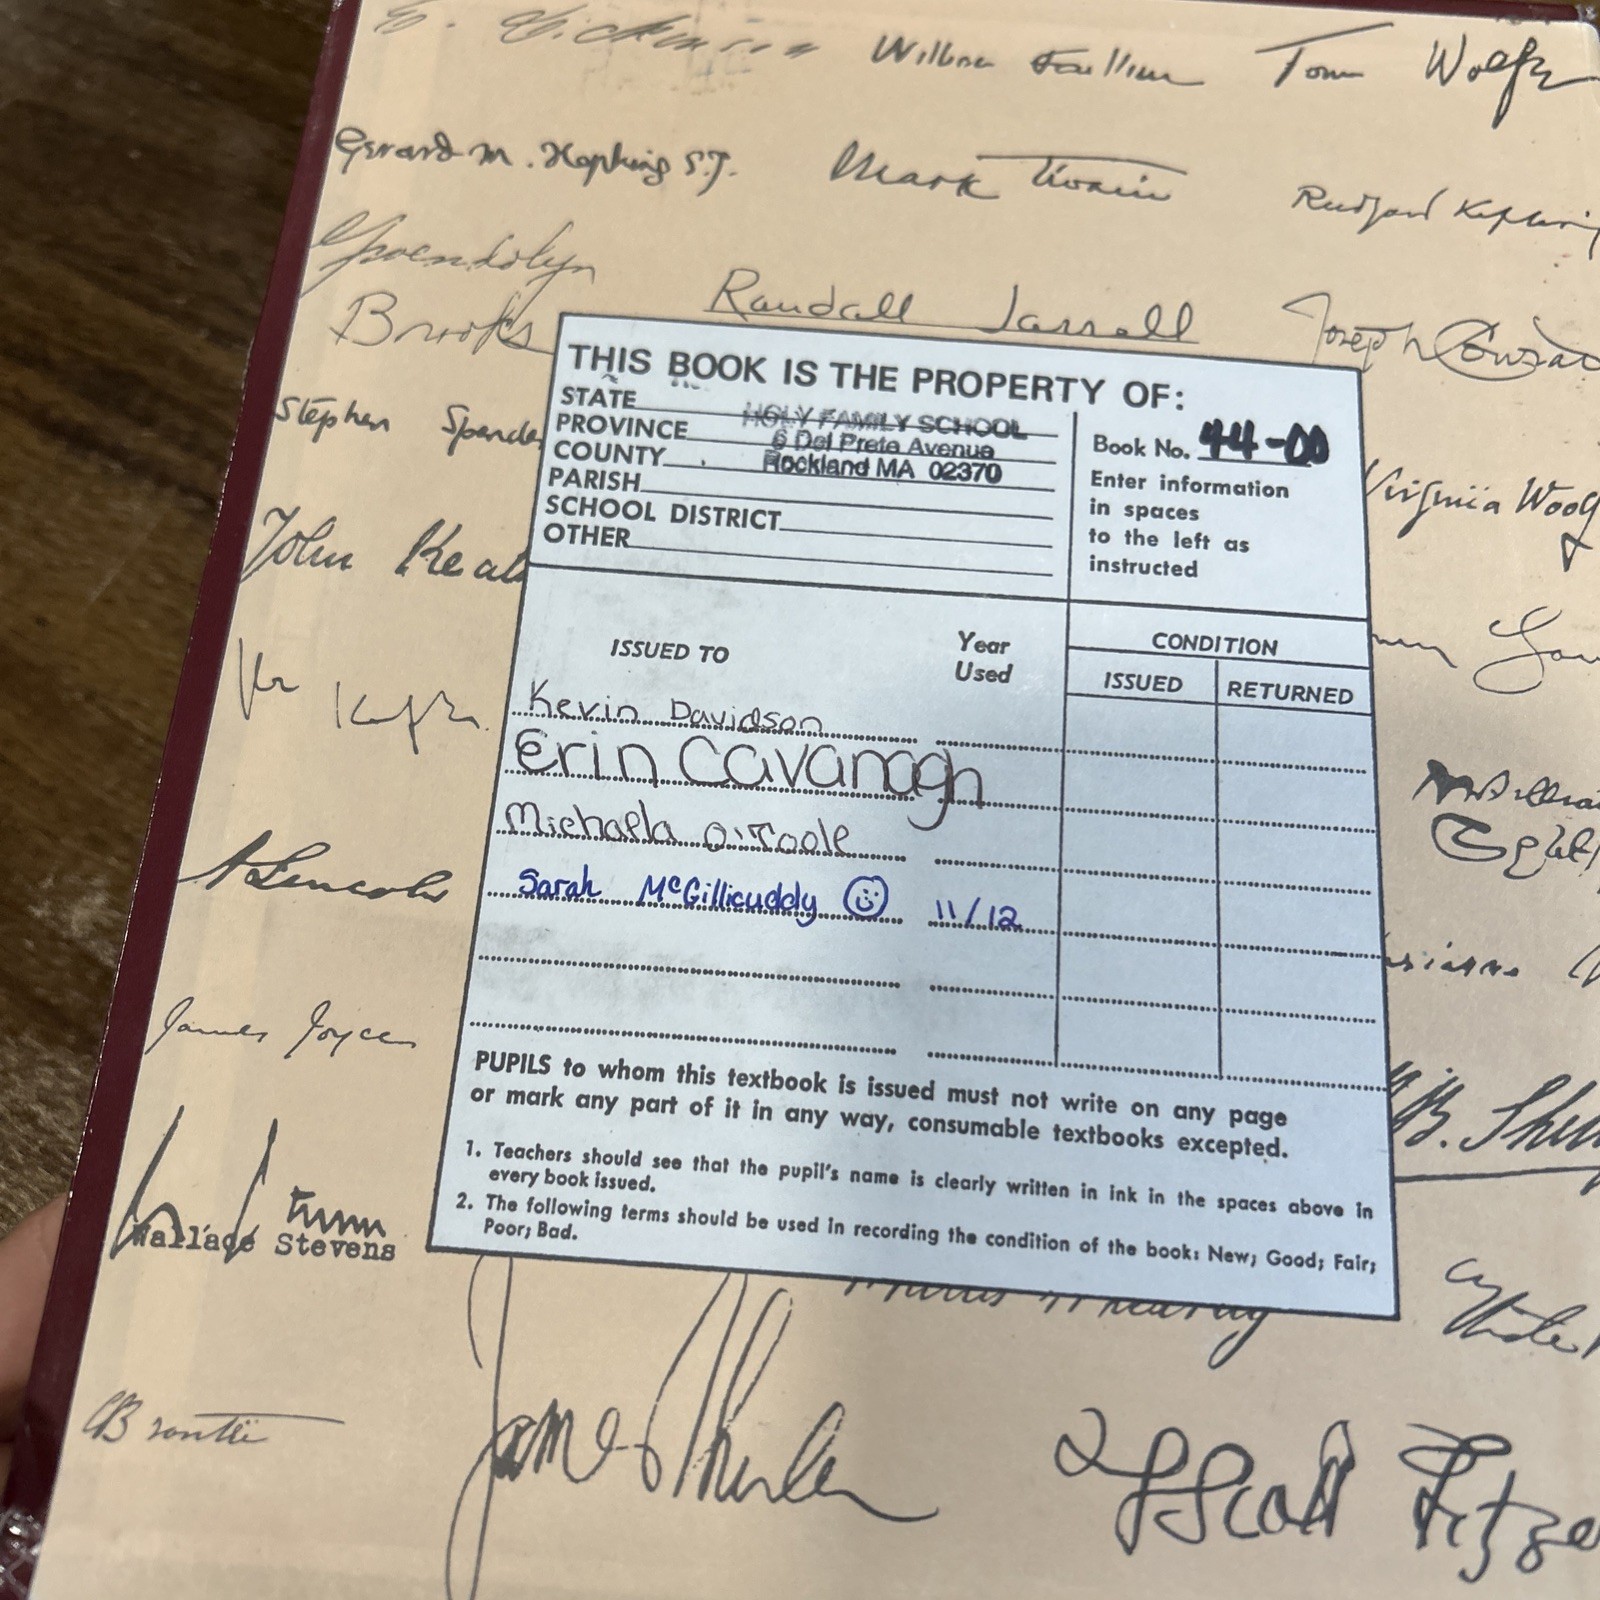 E. Dickinson William Faulkner Tom Wolfe
Gerard M. Hopkins S.J. Mark Twain Rudyard Kipling
Gwendolyn
Brooks Randall Jarrell Joseph Conrad
THIS BOOK IS THE PROPERTY OF:
STATE
PROVINCE HOLY FAMILY SCHOOL
COUNTY 6 Del Prete Avenue
PARISH Rockland MA 02370
SCHOOL DISTRICT
OTHER
Book No. 44-00
Enter information
in spaces
to the left as
instructed
Stephen Spende
Virginia Woolf
John Keat
ISSUED TO Year
Used
CONDITION
ISSUED RETURNED
Kevin Davidson
Erin Cavanagh
Michaela O'Toole
Sarah McGillicuddy 11/12
A Lincoln
James Joyce
PUPILS to whom this textbook is issued must not write on any page
or mark any part of it in any way, consumable textbooks excepted.
1. Teachers should see that the pupil's name is clearly written in ink in the spaces above in
every book issued.
2. The following terms should be used in recording the condition of the book: New; Good; Fair;
Poor; Bad.
Wallace Stevens
CBrontë
James Thurber
F Scott Fitzge